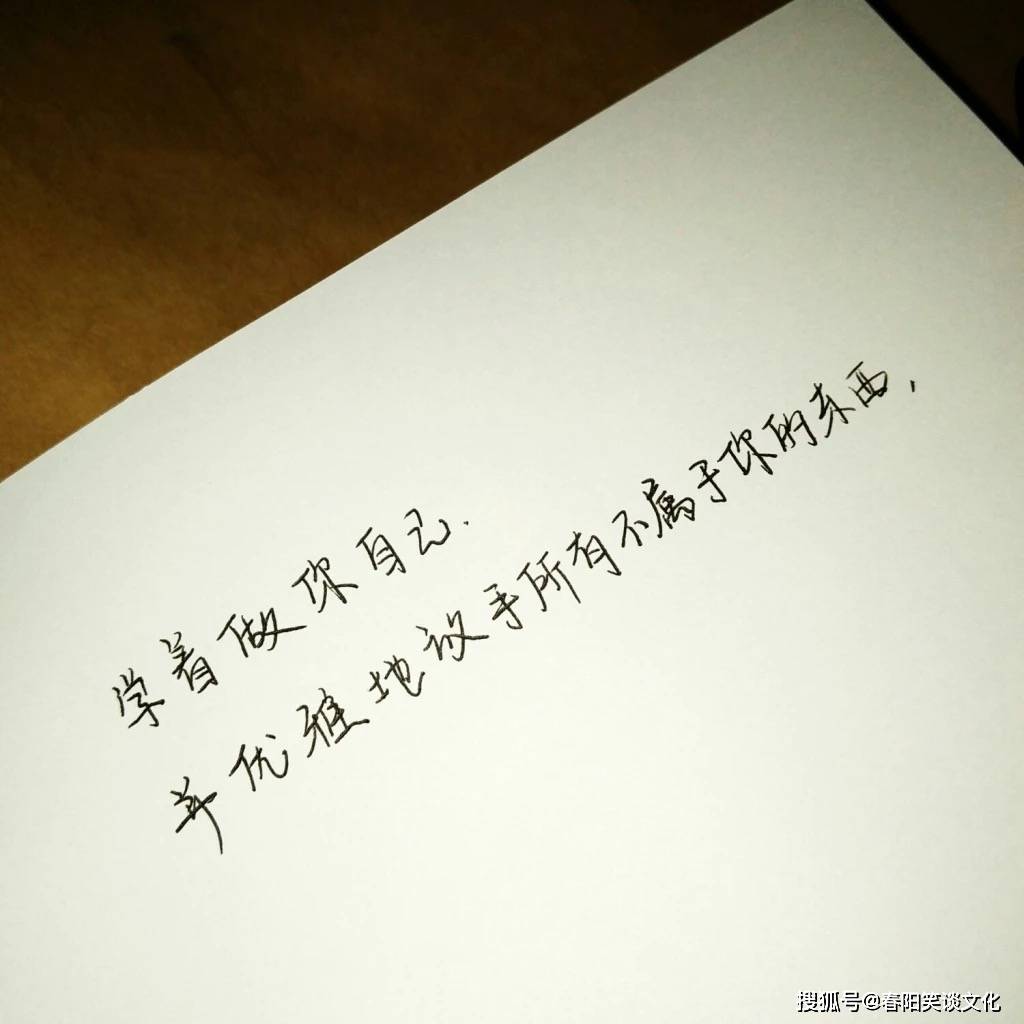 学着做你自己.
并优雅地放手所有不属于你的东西,
搜狐号@春阳笑谈文化